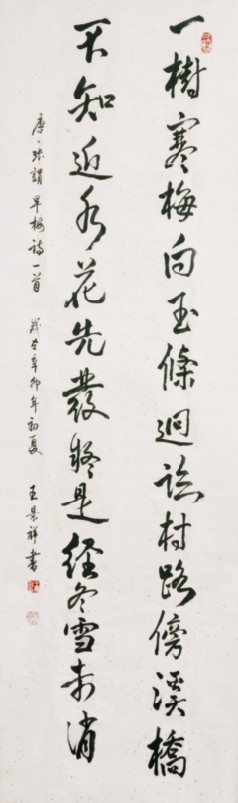 一樹寒梅白玉條迥臨村路傍溪橋
不知近水花先發疑是經冬雪未消
唐、張謂早梅詩一首 歲在辛卯年初夏 王景祥書